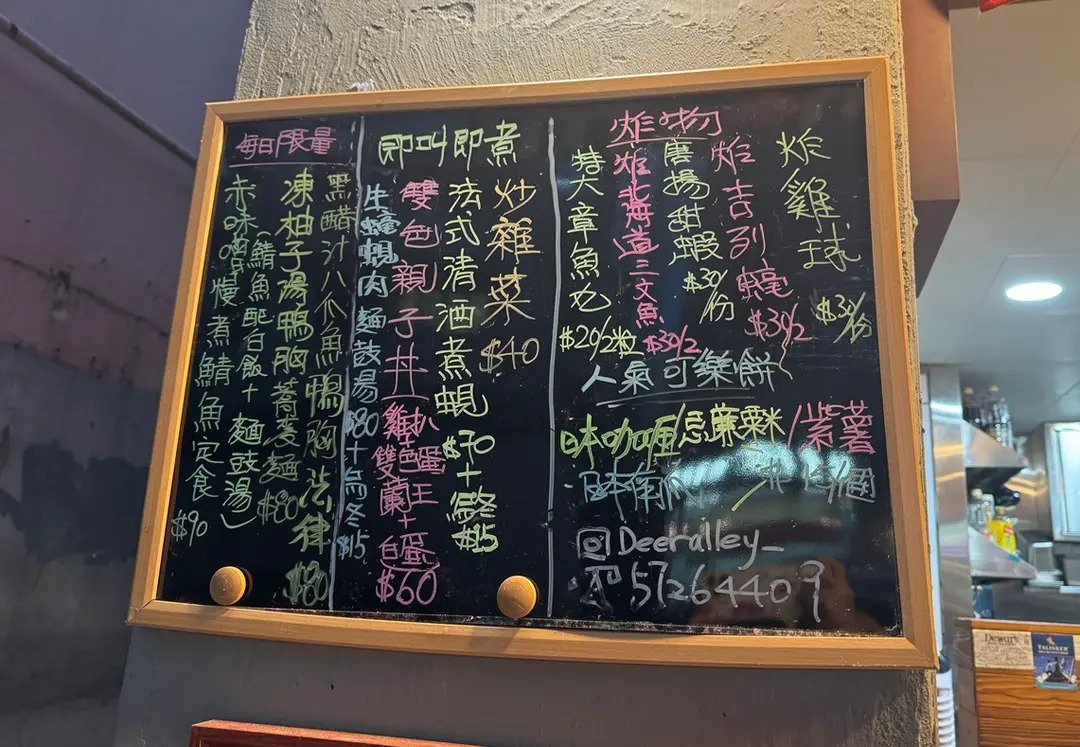 每日限量
黑醋汁八爪魚
鴨胸法律
$80
凍柚子湯鴨胸蕎麥麵
$80
赤味噌慢煮鯖魚定食
$90
(鯖魚配白飯+麵豉湯)
即叫即煮
炒雜菜
$40
法式清酒煮蜆
$70+
$15
雙色親子丼
雞扒
雙色蛋
蘭王+
$60
生蠔蜆肉麵豉湯
$80+烏冬
$15
炸物
炸雞球
$30/份
炸吉列蠔
$30/2
唐揚甜蝦
$30/份
炸北海道三文魚
$30/2
特大章魚丸
$20/2粒
人氣可樂餅
味咖喱/忌廉粟米/紫薯
Deeralley_
57264409
Dewar's
TALISKER